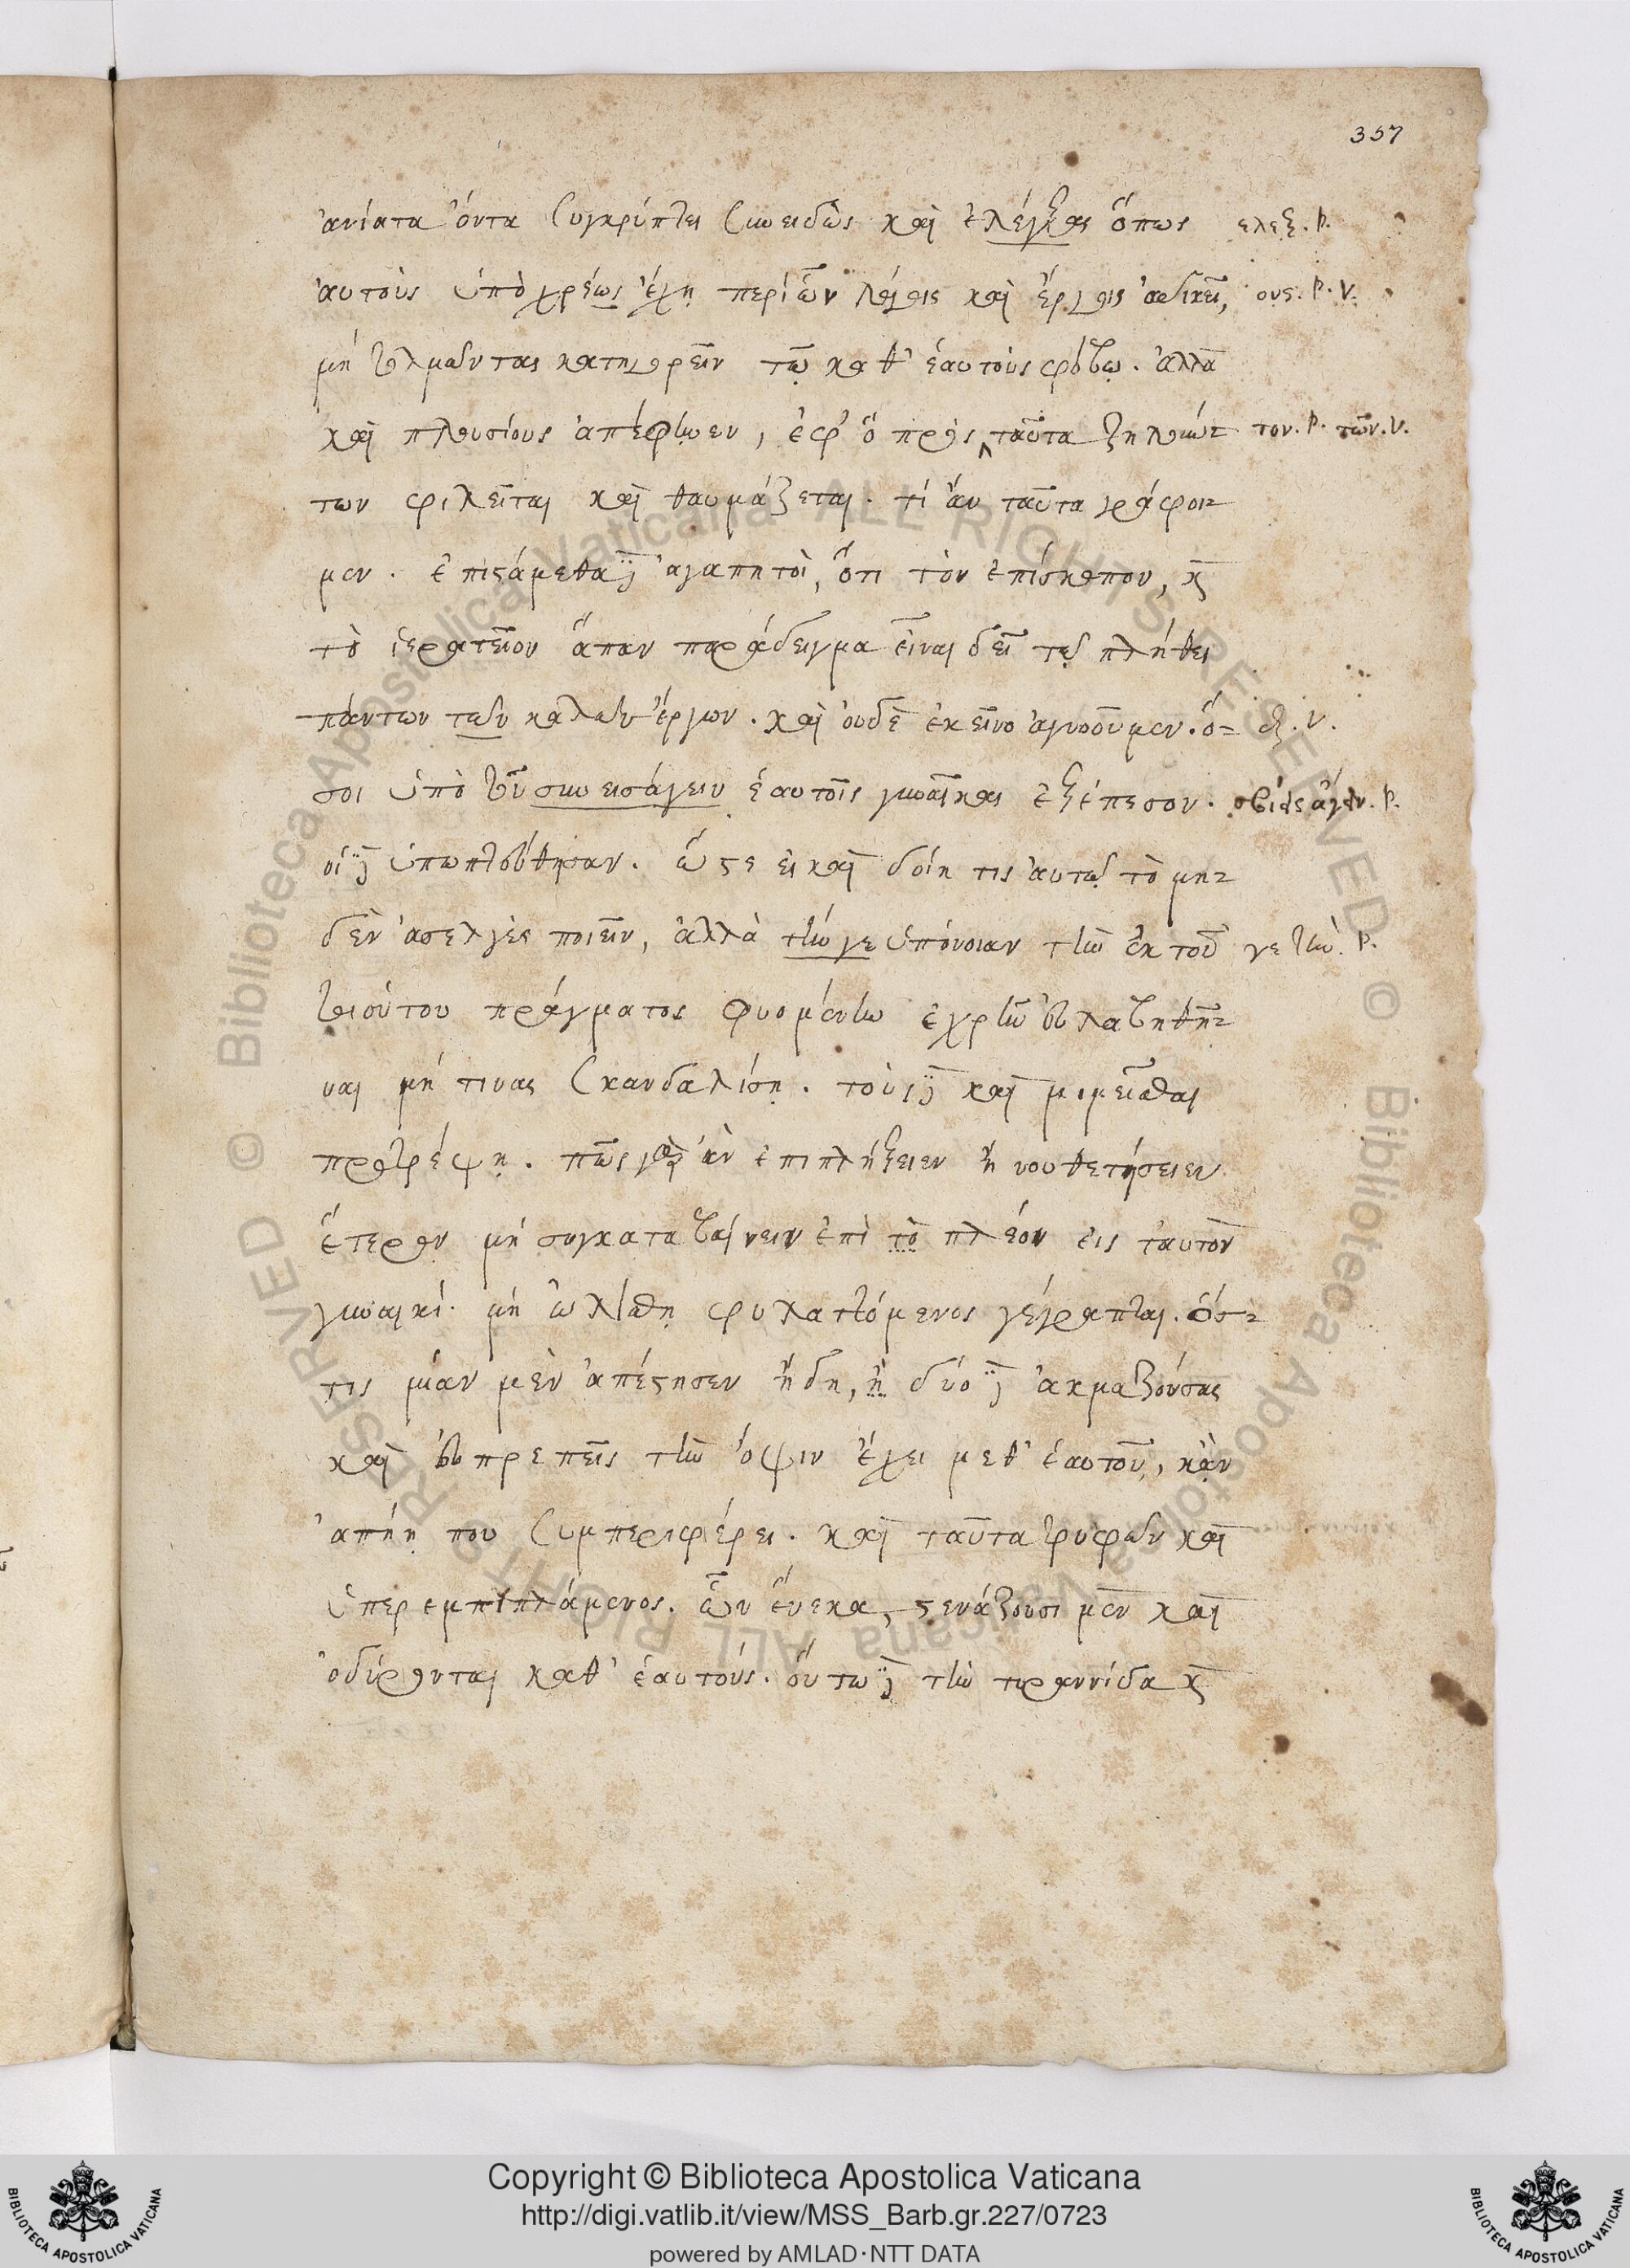 357
ἀνίατα ὄντα συγκρύπτει συνειδὼς καὶ ἐλέγξας ὅπως ελεξ. P.
αὐτοὺς ὑπόχρέως ἔχῃ περὶ ὧν λόγοις καὶ ἔργοις ἀδικεῖ, ους. P. V.
μὴ τολμῶντας κατηγορεῖν τῷ καθ' ἑαυτοὺς φόβῳ. ἀλλὰ
καὶ πλουσίους ἀπέφῃνεν, ἐφ' ὃ πρὸς ταῦτα ζηλούν= τον. P. τῶν. V.
των φιλεῖται καὶ θαυμάζεται. τί ἂν ταῦτα γράφοι=
μεν. ἐπιστάμεθα δὲ ἀγαπητοὶ, ὅτι τὸν ἐπίσκοπον, κ̀
τὸ ἱερατεῖον ἅπαν παράδειγμα εἶναι δεῖ τῷ πλήθει
πάντων τῶν καλῶν ἔργων. καὶ οὐδὲ ἐκεῖνο ἀγνοοῦμεν. ὅ=
σοι ὑπὸ τοῦ συνεισάγειν ἑαυτοῖς γυναῖκας ἐξέπεσον.
οἱ δὲ ὑπωπτεύθησαν. ὥστε εἰ καὶ δοίη τις αὐτῷ τὸ μη=
δὲν ἀσελγὲς ποιεῖν, ἀλλὰ τήν γε ὑπόνοιαν τὴν ἐκ τοῦ γε τὴν. P.
τοιούτου πράγματος φυομένην ἐχρῆν εὐλαβηθῆ=
ναι μή τινας σκανδαλίσῃ. τοὺς δὲ καὶ μιμεῖσθαι
προτρέψῃ. πῶς γὰρ ἂν ἐπιπλήξειεν ἢ νουθετήσειεν
ἕτερον μὴ συγκαταβαίνειν ἐπὶ τὸ πλέον εἰς ταυτὸν
γυναικί. μὴ ὀλίσθῃ φυλαττόμενος γέγραπται. ὅσ=
τις μίαν μὲν ἀπέστησεν ἤδη, ἢ δύο δὲ ἀκμαζούσας
καὶ εὐπρεπεῖς τὴν ὄψιν ἔχει μεθ' ἑαυτοῦ, κἂν
ἀπήῃ που συμπεριφέρει. καὶ ταῦτα τρυφῶν καὶ
ὑπερεμπιπλάμενος. ὧν ἕνεκα, στενάζουσι μὲν καὶ
ὀδύρονται καθ' ἑαυτούς. οὕτω δὲ τὴν τυραννίδα κ̀
Copyright © Biblioteca Apostolica Vaticana
http://digi.vatlib.it/view/MSS_Barb.gr.227/0723
powered by AMLAD·NTT DATA